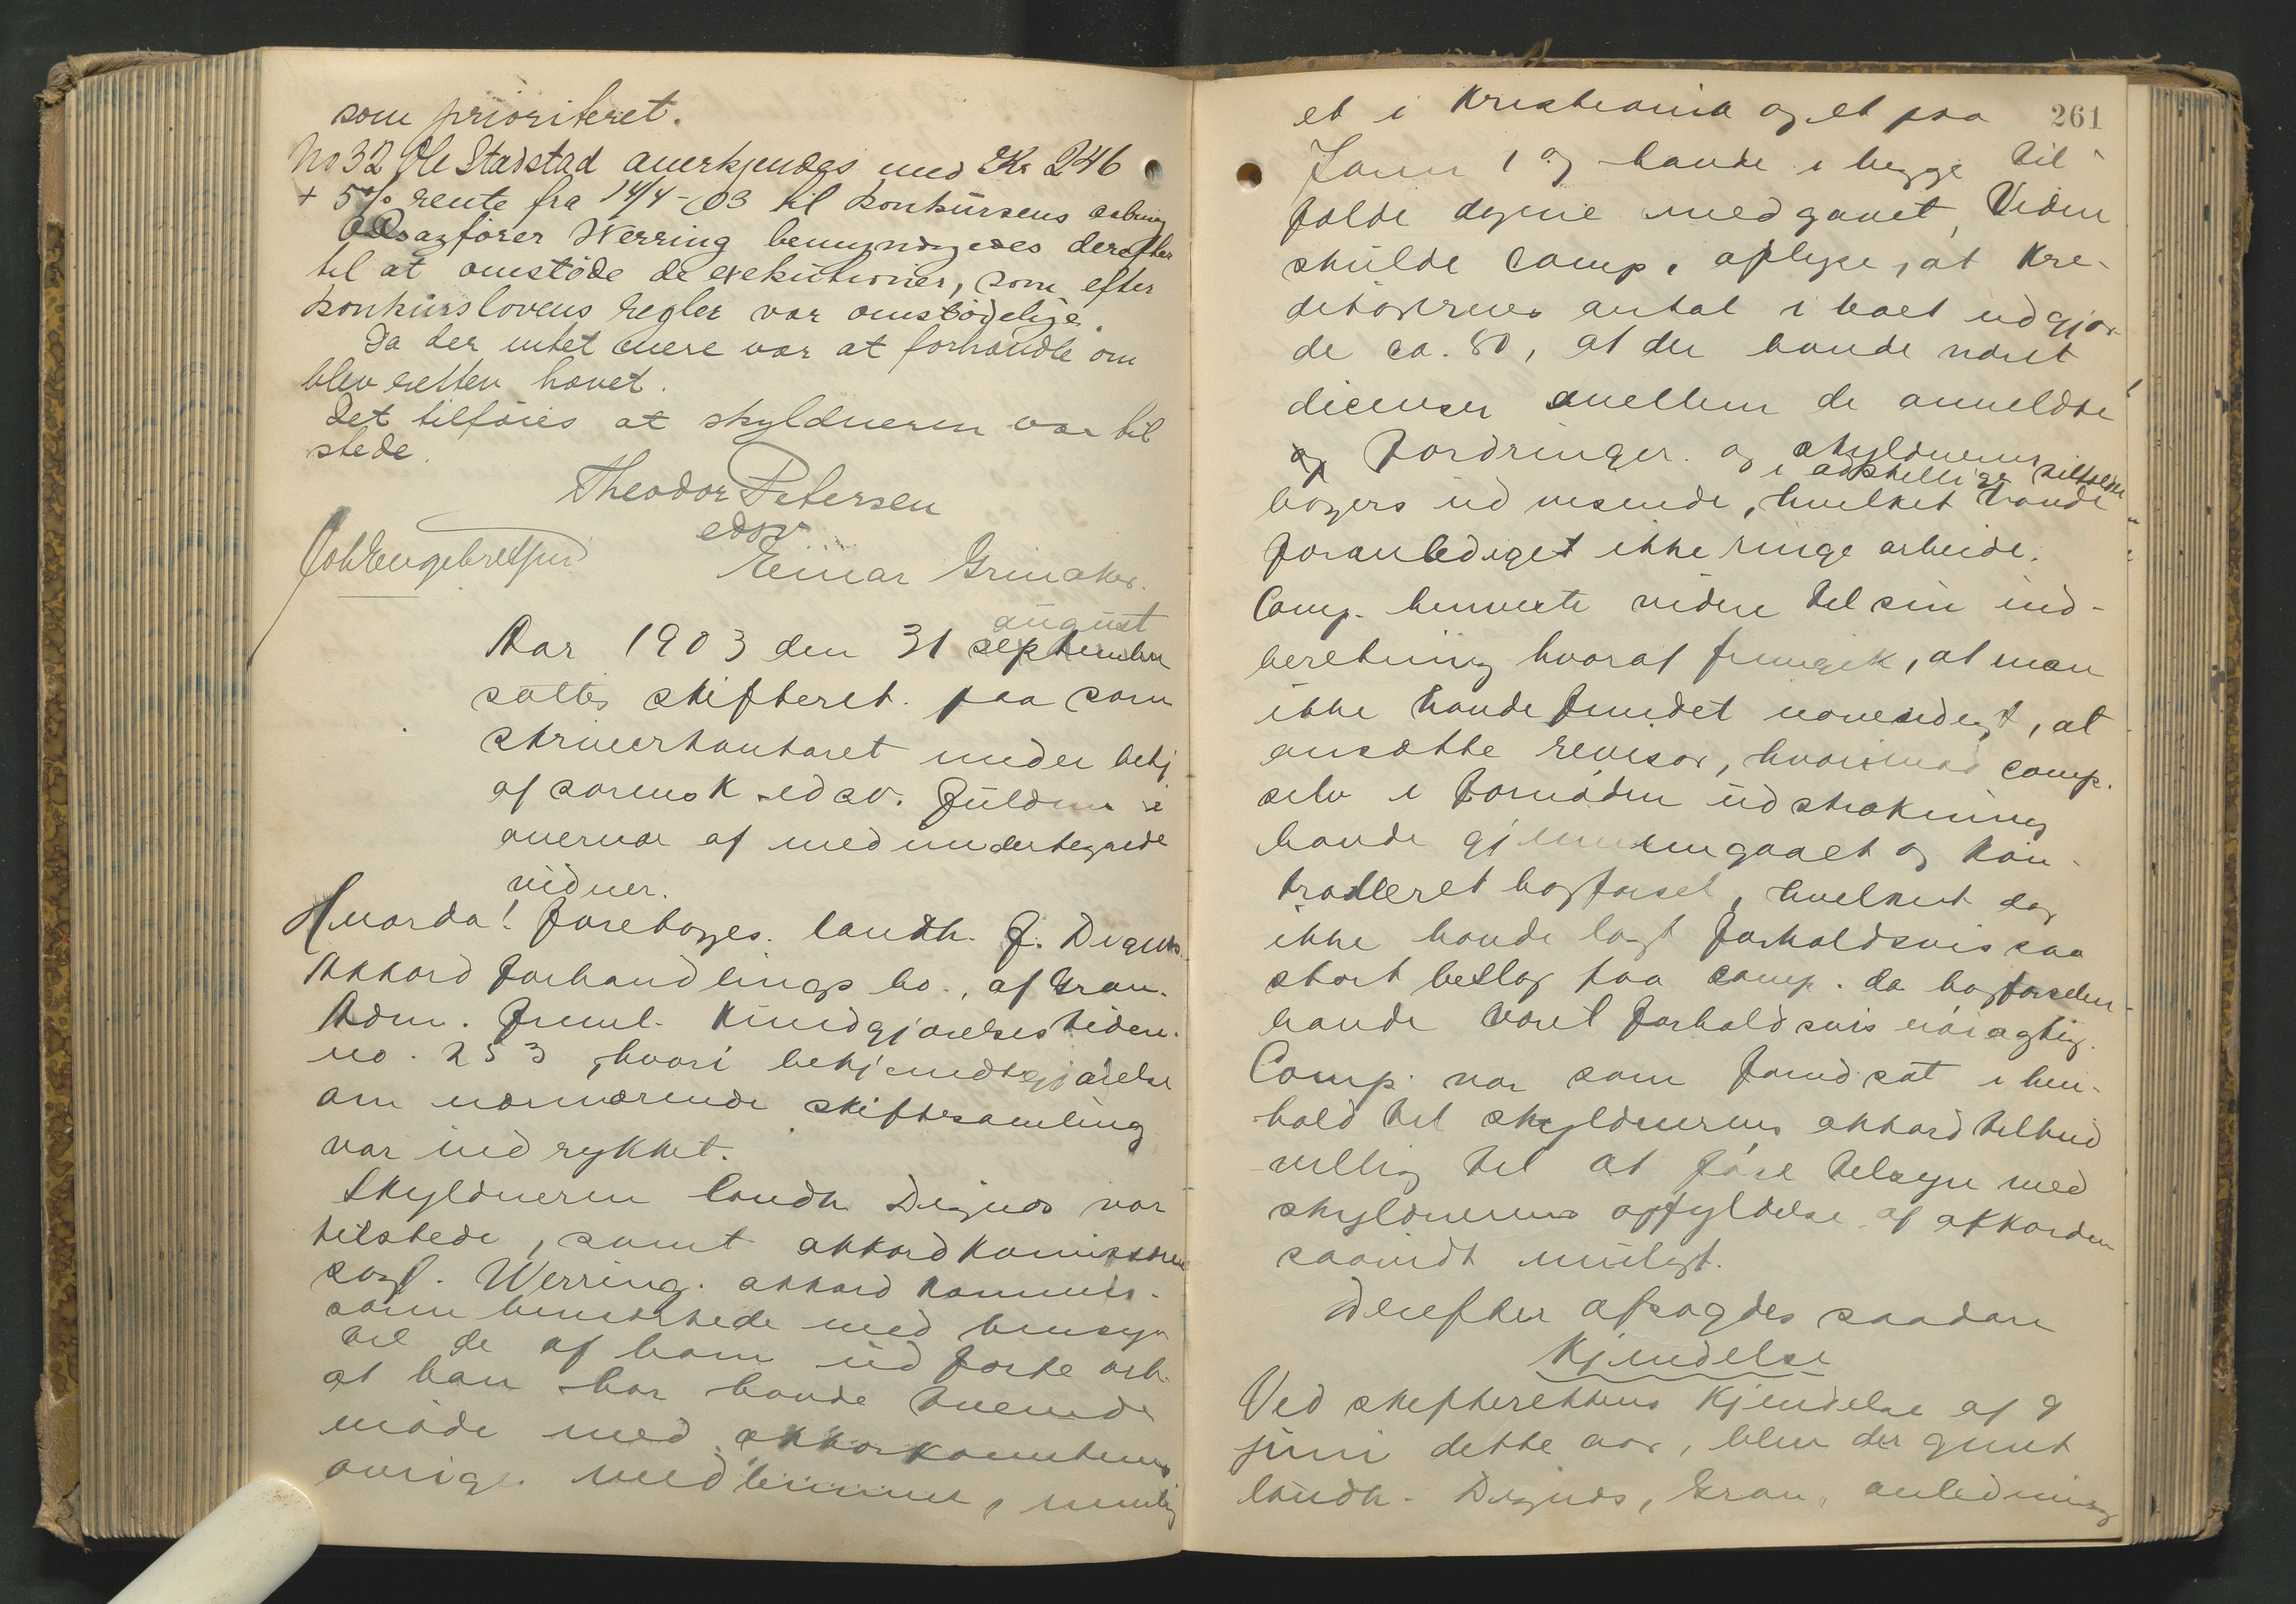 som prioriteret.
No 32 Ole Stadstad anerkjendes med Kr 246
+ 5% rente fra 14/4-03 til konkursens aabning
Osagfører Werring bemyndigedes derefter
til at omstøde de exekutioner, som efter
konkurslovens regler var omstødelige.
Da der intet mere var at forhandle om
blev retten hævet.
Det tilføies at skyldneren var til
stede.
Theodor Petersen
edsv
Joh Engebretsen
Einar Grinaker.
august
Aar 1903 den 31 september
sattes skifteret. paa soren
skriverkontoret under betj
af sorensk ed sv. Juldem i
overvær af medundertegnede
vidner.
Hvorda! Foretoges. landh. J. Dignes
Akkordforhandlings bo., af Gran.
Adm. freml. Kundgjørelsestiden.
no. 253, hvori bekjendtgjørelse
om nærværende skiftesamling
var indrykket.
Skyldneren landh. Dignes var
tilstede, samt akkordkommissæren
sagf. Werring. akkord kommis-
særen bemærkede med hensyn
til de af ham udførte arb.
at han har havde tvende
møde med akkorkomiteens
øvrige medlemmer, nemlig
261
et i Kristiania og et paa
Jaren og havde i begge til-
fælde dagene medgaaet, Viden
skulde Comp. oplyse, at Kre-
ditorernes antal i boet udgjor-
de ca. 80, at der havde været
dicenser mellem de anmeldte
og fordringer. og skyldnerens
i adskillige tilfælde
bøgers udvisende, hvilket havde
foranlediget ikke ringe arbeide.
Comp. henviste videre til sin ind-
beretning hvoraf fremgik, at man
ikke havde fundet nødvendigt, at
ansætte revisor, hvorimod comp.
selv i fornøden udstrækning
havde gjennemgaaet og kon-
trolleret bogførsel, hvilket dog
ikke havde lagt forholdsvis saa
stort beslag paa comp. da bogførselen
havde været forholdsvis nøiagtig.
Comp. var som forudsat i hen-
hold til skyldnerens akkordtilbud
villig til at føre tilsyn med
skyldnerens opfyldelse af akkorden
saavidt muligt.
Derefter afsagdes saadan
Kjendelse
Ved skifterettens Kjendelse af 9
juni dette aar, blev der givet
landh. Dignes, Gran, anledning